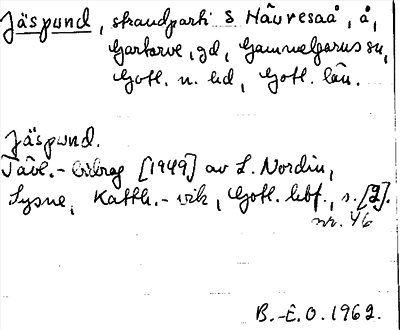 Jäspund, strandparti S Hauresaå, å,
Gartarve, gd, Gammelgarns sn,
Gotl. n. hd, Gotl. län.
Jäspund.
Tävl.-bidrag [1949] av L. Nordin,
Lysne, Katth.-vik, Gotl. hbf., s. [2].
nr. 46
B.-E.O. 1962.